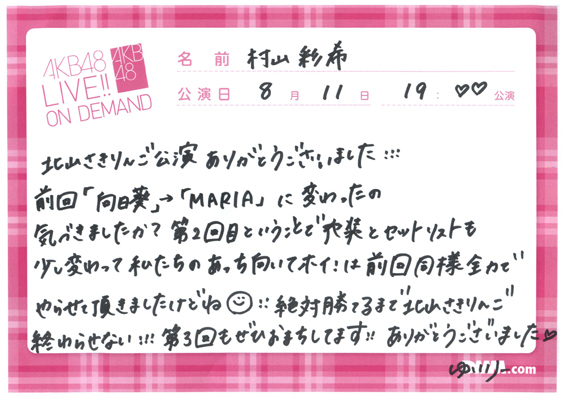 AKB48
LIVE!!
ON DEMAND
AKB
48
名前 村山彩希
公演日 8月11日 19:♡♡公演
北山さきりんご公演 ありがとうございました!!!
前回「向日葵」→「MARIA」に変わったの
気づきましたか? 第2回目ということで衣装とセットリストも
少し変わって私たちのあっち向いてホイ!は前回同様全力で
やらせて頂きましたけどね☺!! 絶対勝てるまで北山さきりんご
終わらせない!!! 第3回もぜひおまちしてます!! ありがとうございました♡
ゆいりー
.com